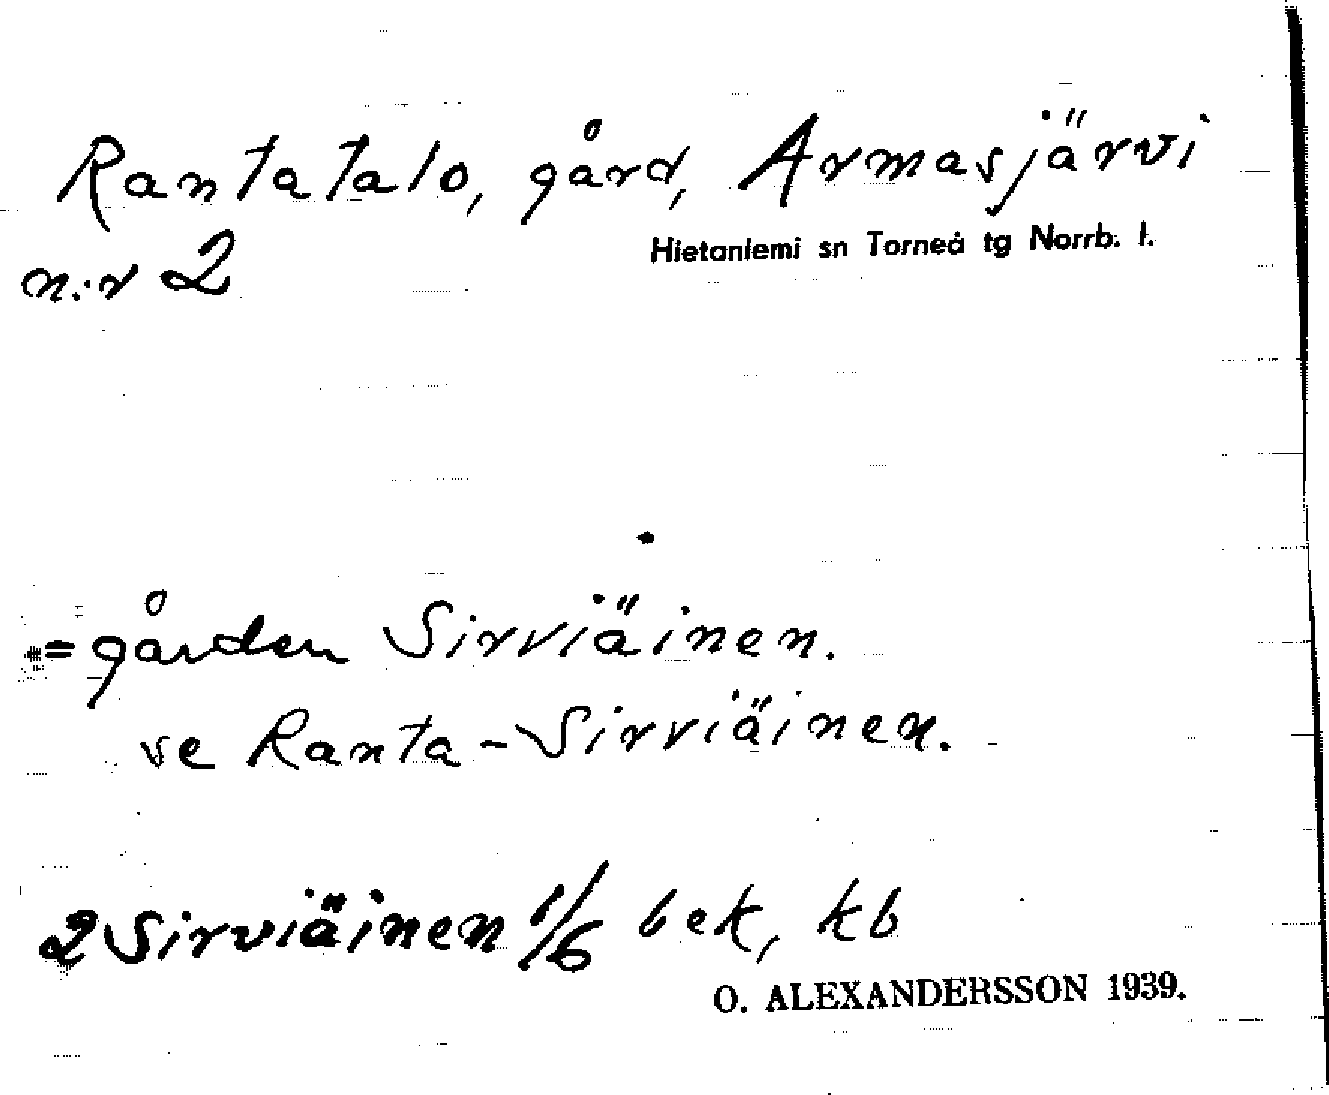 Rantatalo, gård, Armasjärvi
n:r 2
Hietaniemi sn Torneå tg Norrb. l.
= gården Sirviäinen.
se Ranta-Sirviäinen.
2 Sirviäinen 1/6 bek, kb
O. ALEXANDERSSON 1939.